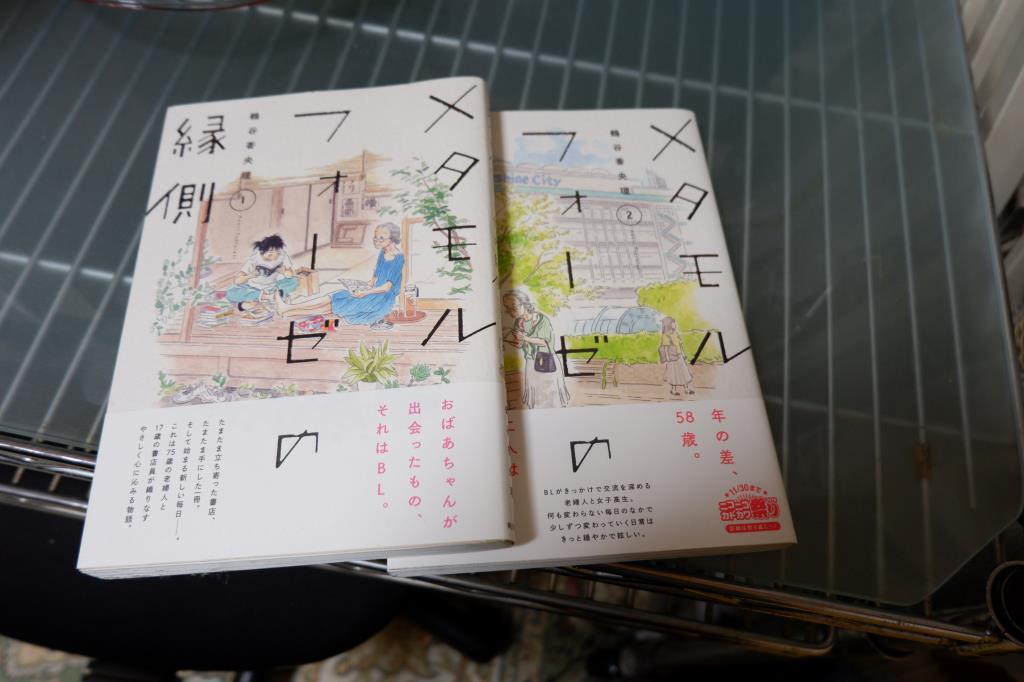 メタモル
フォーゼの
縁側
鶴谷香央理
1
おばあちゃんが
出会ったもの、
それはBL。
たまたま立ち寄った書店、
たまたま手にした一冊。
そして始まる新しい毎日――。
これは75歳の老婦人と
17歳の書店員が織りなす
やさしく心に沁みる物語。
メタモル
フォーゼの
鶴谷香央理
2
shine City
年の差、
58歳。
二人は
BLがきっかけで交流を深める
老婦人と女子高生。
何も変わらない毎日のなかで
少しずつ変わっていく日常は
きっと穏やかで眩しい。
11/30まで
ニコニコ
カドカワ
祭り